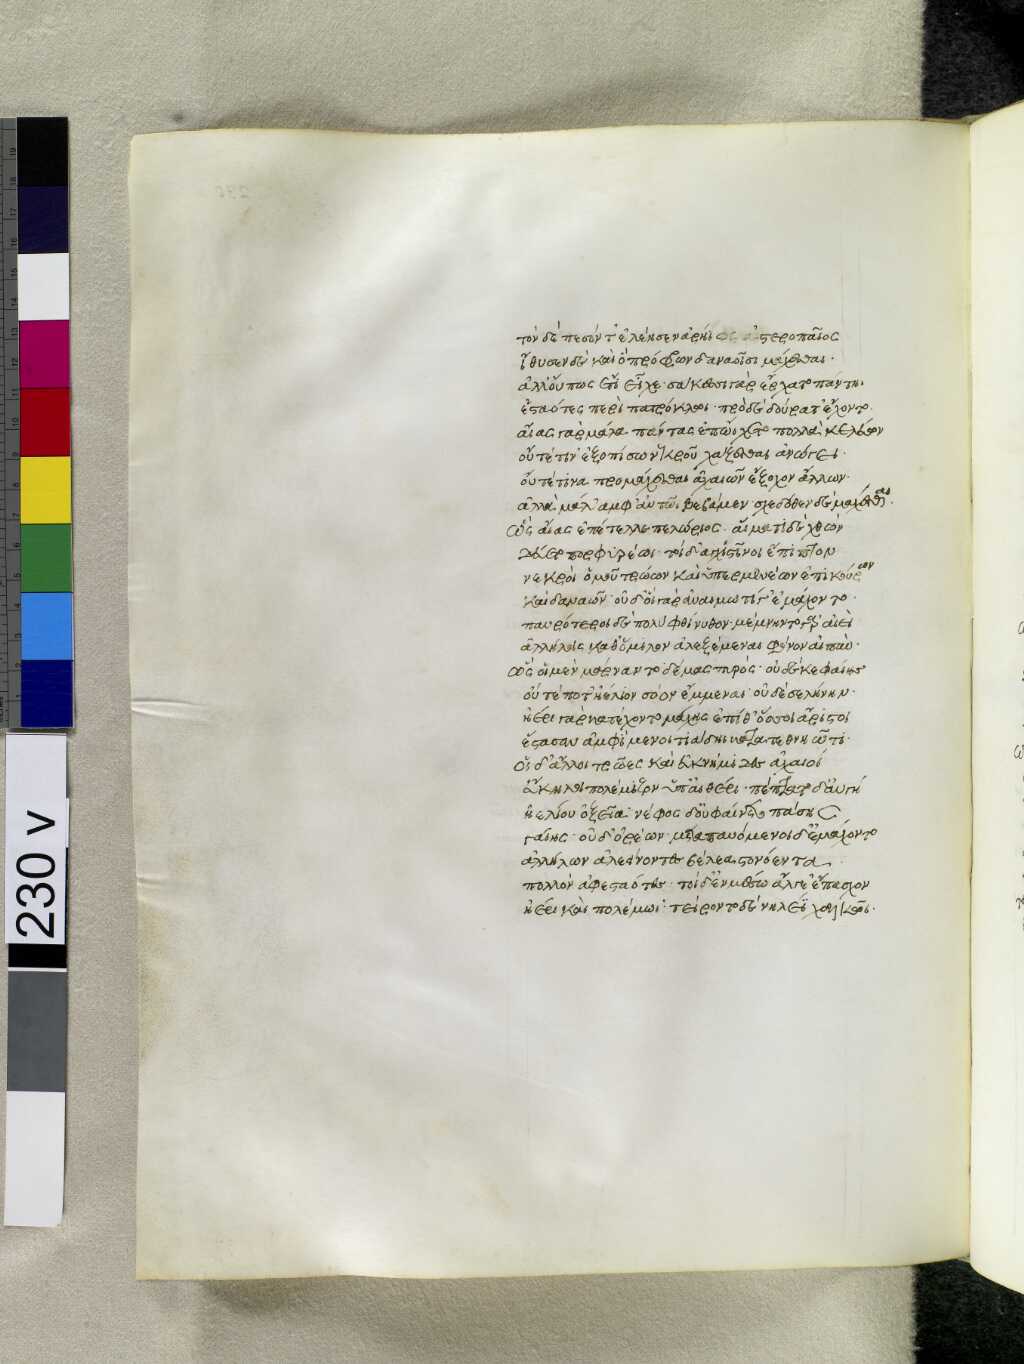 τὸν δὲ πεσόντ' ἐλέησεν ἀρήϊος ἀστεροπαῖος
ἴθυσεν δὲ καὶ ὁ πρόφρων δαναοῖσι μάχεσθαι·
ἀλλ' οὔπως ἔτι εἶχε· σάκεσσι γὰρ ἔρχατο πάντηι
ἑσταότες περὶ πατρόκλωι· πρὸ δὲ δούρατ' ἔχοντο·
αἴας γὰρ μάλα πάντας ἐπώιχετο πολλὰ κελεύων
οὔτέ τιν' ἐξοπίσω νεκροῦ χάζεσθαι ἀνώγει·
οὔτέ τινα προμάχεσθαι ἀχαιῶν ἔξοχον ἄλλων·
ἀλλὰ μάλ' ἀμφ' αὐτῶι βεβάμεν σχεδόθεν δὲ μάχεσθαι·
ὣς αἴας ἐπέτελλε πελώριος· αἵματι δὲ χθὼν
δεύετο πορφυρέωι· τοὶ δ' ἀγχιστῖνοι ἔπιπτον
νεκροὶ ὁμοῦ τρώων καὶ ὑπερμενέων ἐπικούρων
καὶ δαναῶν· οὐδ' οἳ γὰρ ἀναιμωτίγ' ἐμάχοντο·
παυρότεροι δὲ πολὺ φθίνυθον· μέμνηντο γὰρ αἰεὶ
ἀλλήλοις καθ' ὅμιλον ἀλεξέμεναι φόνον αἰπύν·
ὣς οἳ μὲν μάρναντο δέμας πυρός· οὐδέ κε φαίης
οὔτέ ποτ' ἠέλιον σόον ἔμμεναι· οὐδὲ σελήνην·
ἠέρι γὰρ κατέχοντο μάχης ἐπί θ' ὅσσοι ἄριστοι
ἕστασαν ἀμφὶ μενοιτιάδηι κατατεθνηῶτι·
Οἱ δ' ἄλλοι τρῶες καὶ ἐϋκνήμιδες ἀχαιοί
εὔκηλοι πολέμιζον ὑπ' αἰθέρι· πέπτατο δ' αὐγὴ
ἠελίου ὀξεῖα· νέφος δ' οὐ φαίνετο πάσης
γαίης· οὐδ' ὀρέων· μεταπαυόμενοι δ' ἐμάχοντο
ἀλλήλων ἀλεείνοντες βέλεα στονόεντα·
πολλὸν ἀφεσταότες· τοὶ δ' ἐν μέσω ἄλγε' ἔπασχον
ἠέρι καὶ πολέμωι· τείροντο δὲ νηλέϊ χαλκῶι·
230 v